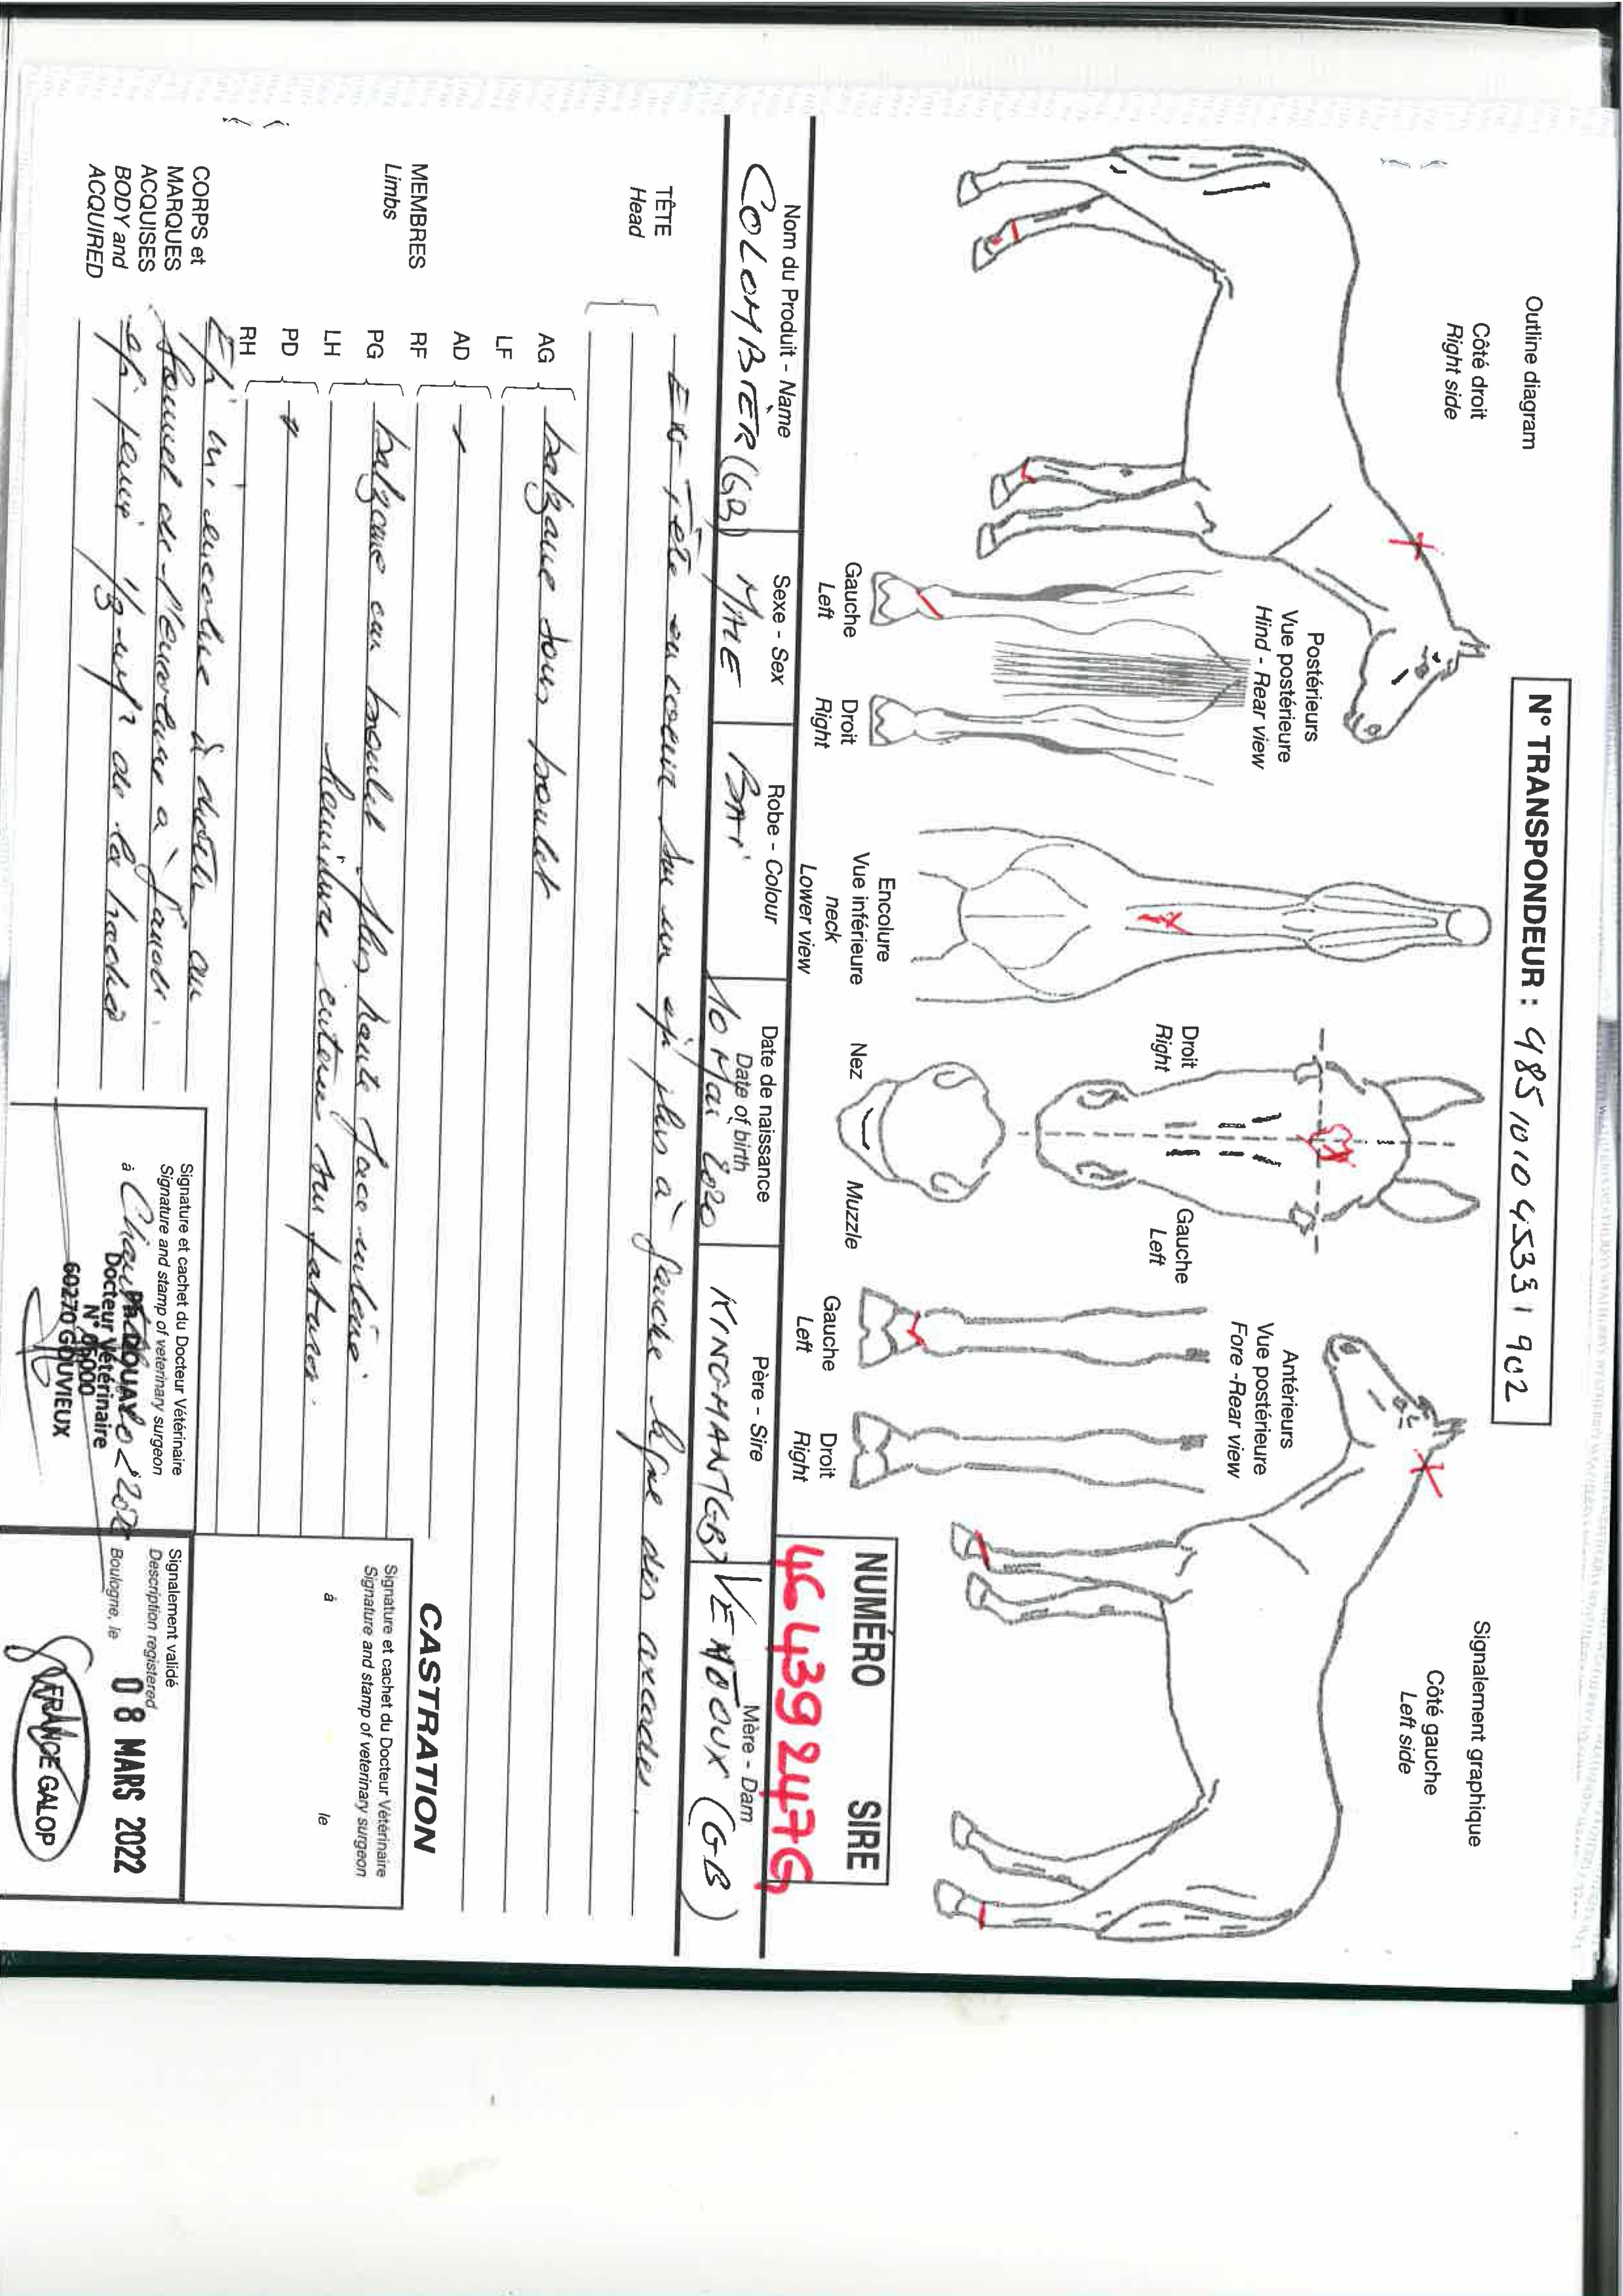 N° TRANSPONDEUR : 985101045331902
Outline diagram
Signalement graphique
Côté droit
Right side
Côté gauche
Left side
Postérieurs
Vue postérieure
Hind - Rear view
Gauche
Left
Droit
Right
Encolure
Vue inférieure
neck
Lower view
Droit
Right
Gauche
Left
Nez
Muzzle
Antérieurs
Vue postérieure
Fore - Rear view
Gauche
Left
Droit
Right
NUMÉRO SIRE
Nom du Produit - Name
COLOMBIER (GB)
Sexe - Sex
MALE
Robe - Colour
BAI
Date de naissance
Date of birth
10 Mai 2020
Père - Sire
KINGMAN (GB)
Mère - Dam
VEMOUX (GB)
TÊTE
Head
En Tête en coeur sur un épi plus à gauche ligne des arcades.
MEMBRES
Limbs
AG
LF
balzane sous boulet
AD
RF
PG
LH
balzane au boulet plus haute face
herminure sur paturon.
PD
RH
CORPS et
MARQUES
ACQUISES
BODY and
ACQUIRED
Epi encolure à droite au
de l'encolure à gauche.
épi 1/3 de la trachée
CASTRATION
Signature et cachet du Docteur Vétérinaire
Signature and stamp of veterinary surgeon
à le
Signature et cachet du Docteur Vétérinaire
Signature and stamp of veterinary surgeon
à
Docteur Vétérinaire
60270 GOUVIEUX
Signalement validé
Description registered
Boulogne, le 08 MARS 2022
FRANCE GALOP